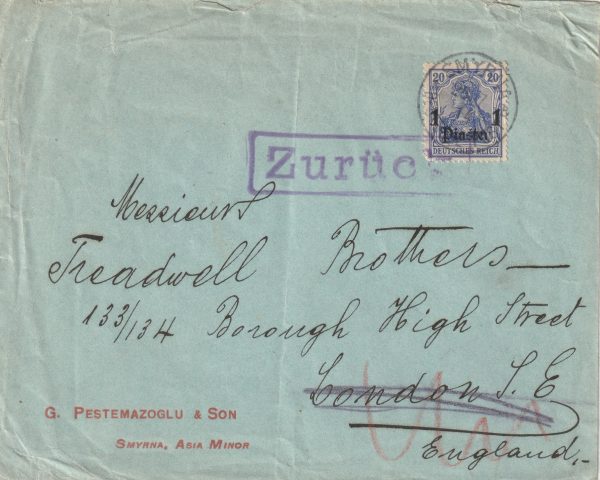 SMYRNA
20 20
1 1
Piaster
DEUTSCHES REICH
Zurück
Messieurs
Treadwell Brothers
133/134 Borough High Street
London S.E
England.-
G. PESTEMAZOGLU & SON
SMYRNA, ASIA MINOR